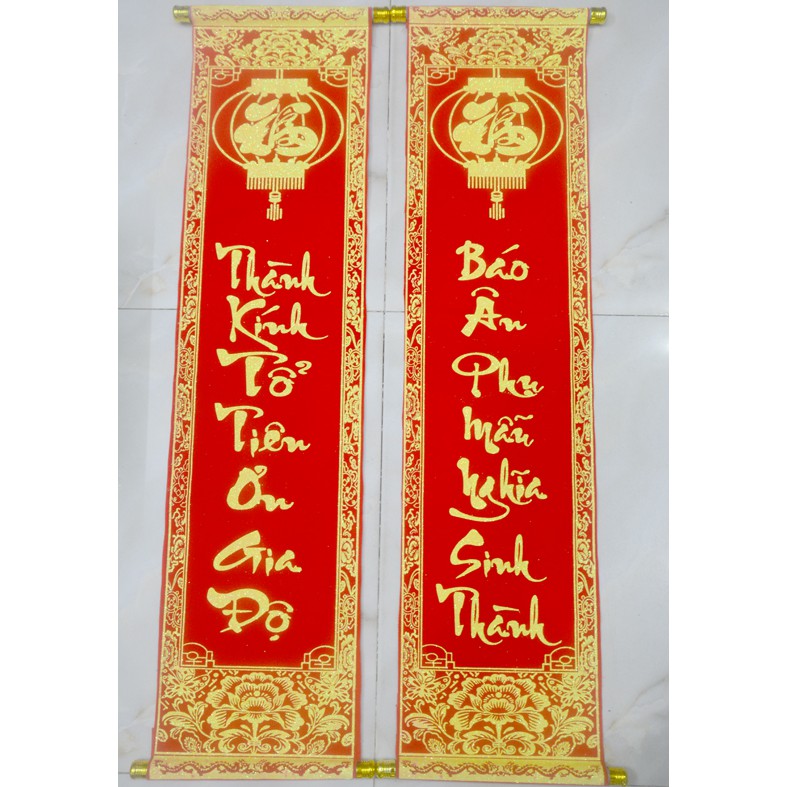 福
Thành
Kính
Tổ
Tiên
Ơn
Gia
Độ
福
Báo
Ân
Phụ
Mẫu
Nghĩa
Sinh
Thành